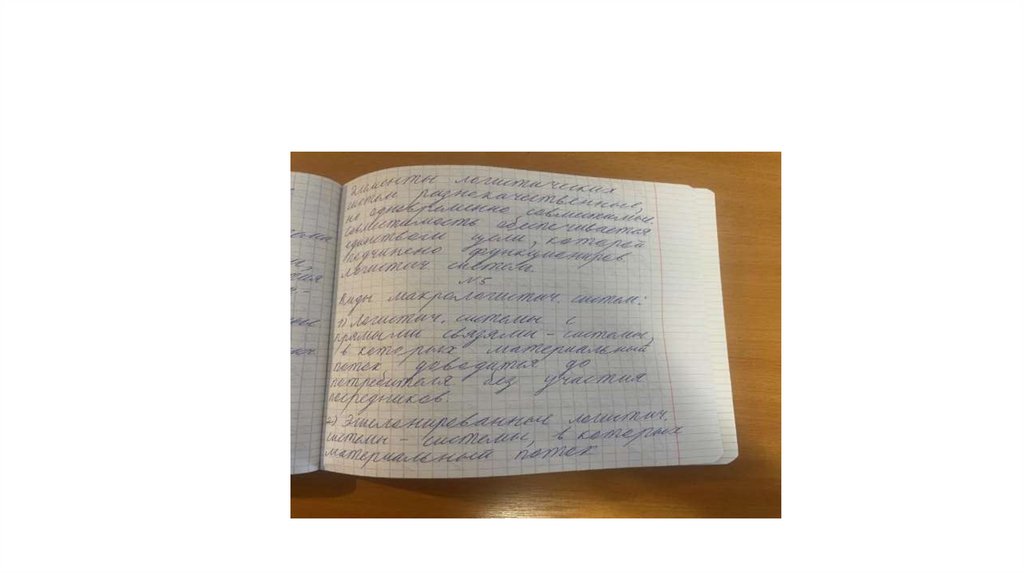 Элементы логистических
систем разнокачественные,
но одновременно совместимые.
совместимость обеспечивается
единством цели, которой
подчинено функциониров
логистич систем.
№5
Виды макрологистич. систем:
1) Логистич. системы с
прямыми связями - системы,
в которых материальный
поток доводится до
потребителя без участия
посредников.
2) Эшелонированные логистич.
системы - системы, в которых
материальный поток